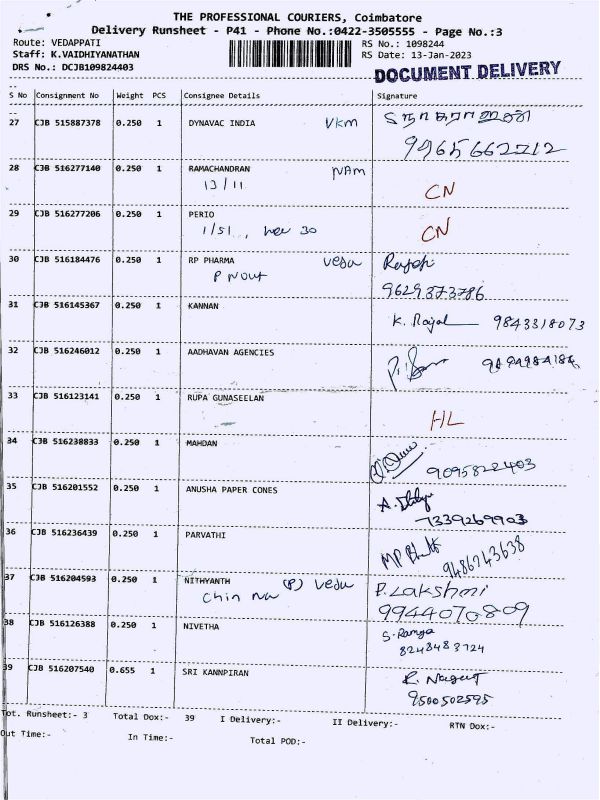 THE PROFESSIONAL COURIERS, Coimbatore
Delivery Runsheet - P41 - Phone No.:0422-3505555 - Page No.:3
Route: VEDAPPATI
Staff: K.VAIDHIYANATHAN
DRS No.: DCJB109824403
RS No.: 1098244
RS Date: 13-Jan-2023
DOCUMENT DELIVERY
S No Consignment No Weight PCS Consignee Details Signature
27 CJB 515887378 0.250 1 DYNAVAC INDIA VKM
9965662212
28 CJB 516277140 0.250 1 RAMACHANDRAN NAM
13/11 CN
29 CJB 516277206 0.250 1 PERIO
1/51, 30 CN
30 CJB 516184476 0.250 1 RP PHARMA Veda Rajesh
P NOUT 9629373786
31 CJB 516145367 0.250 1 KANNAN
K. Rajal 9843318073
32 CJB 516246012 0.250 1 AADHAVAN AGENCIES
9894984186
33 CJB 516123141 0.250 1 RUPA GUNASEELAN
HL
34 CJB 516238833 0.250 1 MAHDAN
9095822403
35 CJB 516201552 0.250 1 ANUSHA PAPER CONES
7339269903
36 CJB 516236439 0.250 1 PARVATHI
9486243638
37 CJB 516204593 0.250 1 NITHYANTH (P) Veda P. Lakshmi
Chin na 9944070809
38 CJB 516126388 0.250 1 NIVETHA S. Ranga
8248483724
39 CJB 516207540 0.655 1 SRI KANNPIRAN R. Nagut
9500502595
Tot. Runsheet:- 3 Total Dox:- 39 I Delivery:- II Delivery:- RTN Dox:-
Out Time:- In Time:- Total POD:-